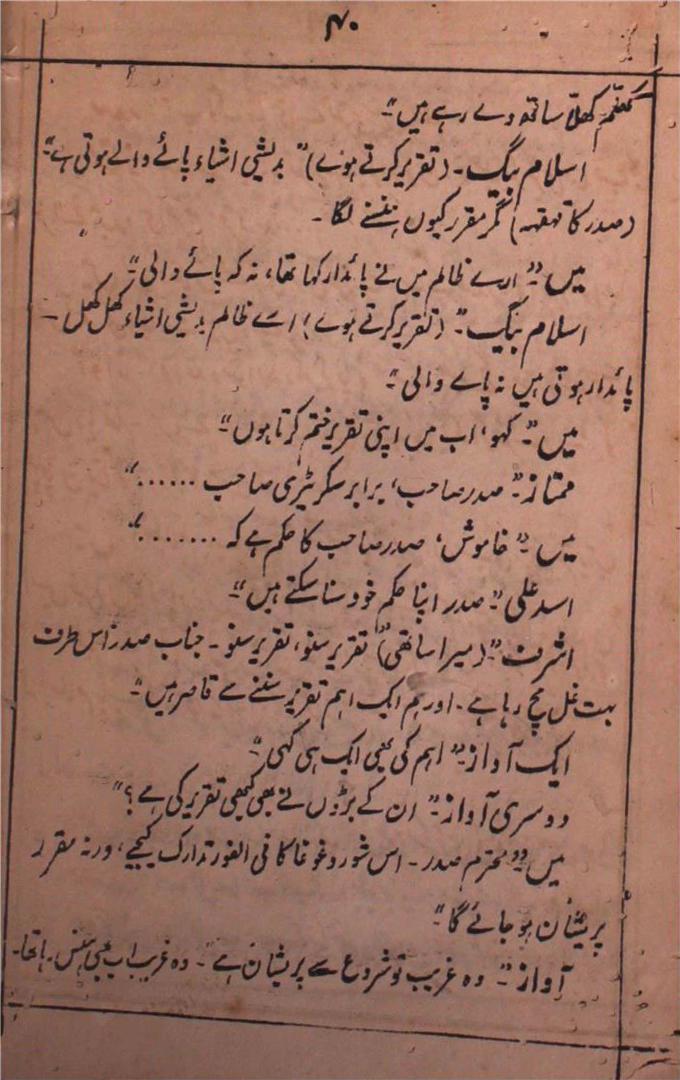 ۴۰
کھلم کھلا ساتھ دے رہے ہیں"۔
اسلام بیگ۔ (تقریر کرتے ہوئے)" بدیشی اشیاء پائے والے ہوتی ہے"۔
(صدر کا قہقہہ) مگر مقرر کیوں ہنسنے لگا۔
میں:۔" ارے ظالم میں نے پائدار کہا تھا، نہ کہ پائے والی"۔
اسلام بیگ:۔" (تقریر کرتے ہوئے) اسے ظالم بدیشی اشیاء کھل کھل۔
پائدار ہوتی ہیں نہ پاے والی"۔
میں:۔" کہو، اب میں اپنی تقریر ختم کرتا ہوں"۔
ممتاز:۔" صدر صاحب، برابر سکریٹری صاحب ......"
میں:۔" خاموش، صدر صاحب کا حکم ہے کہ ......."
اسد علی:۔" صدر اپنا حکم خود سنا سکتے ہیں"۔
اشرف:۔" (میرا ساتھی) تقریر سنو، تقریر سنو۔ جناب صدر اس طرف
بہت غل مچ رہا ہے۔ اور ہم ایک اہم تقریر سننے سے قاصر ہیں"۔
ایک آواز:۔" اہم کی بھی ایک ہی کہی"۔
دوسری آواز:۔" ان کے بڑوں نے بھی کبھی تقریر کی ہے؟"
میں:۔" محترم صدر۔ اس شور و غوغا کا فی الفور تدارک کیجیے، ورنہ مقرر
پریشان ہو جائے گا"۔
آواز:۔" وہ غریب تو شروع سے پریشان ہے"۔ وہ غریب اب بھی ہنس رہا تھا۔